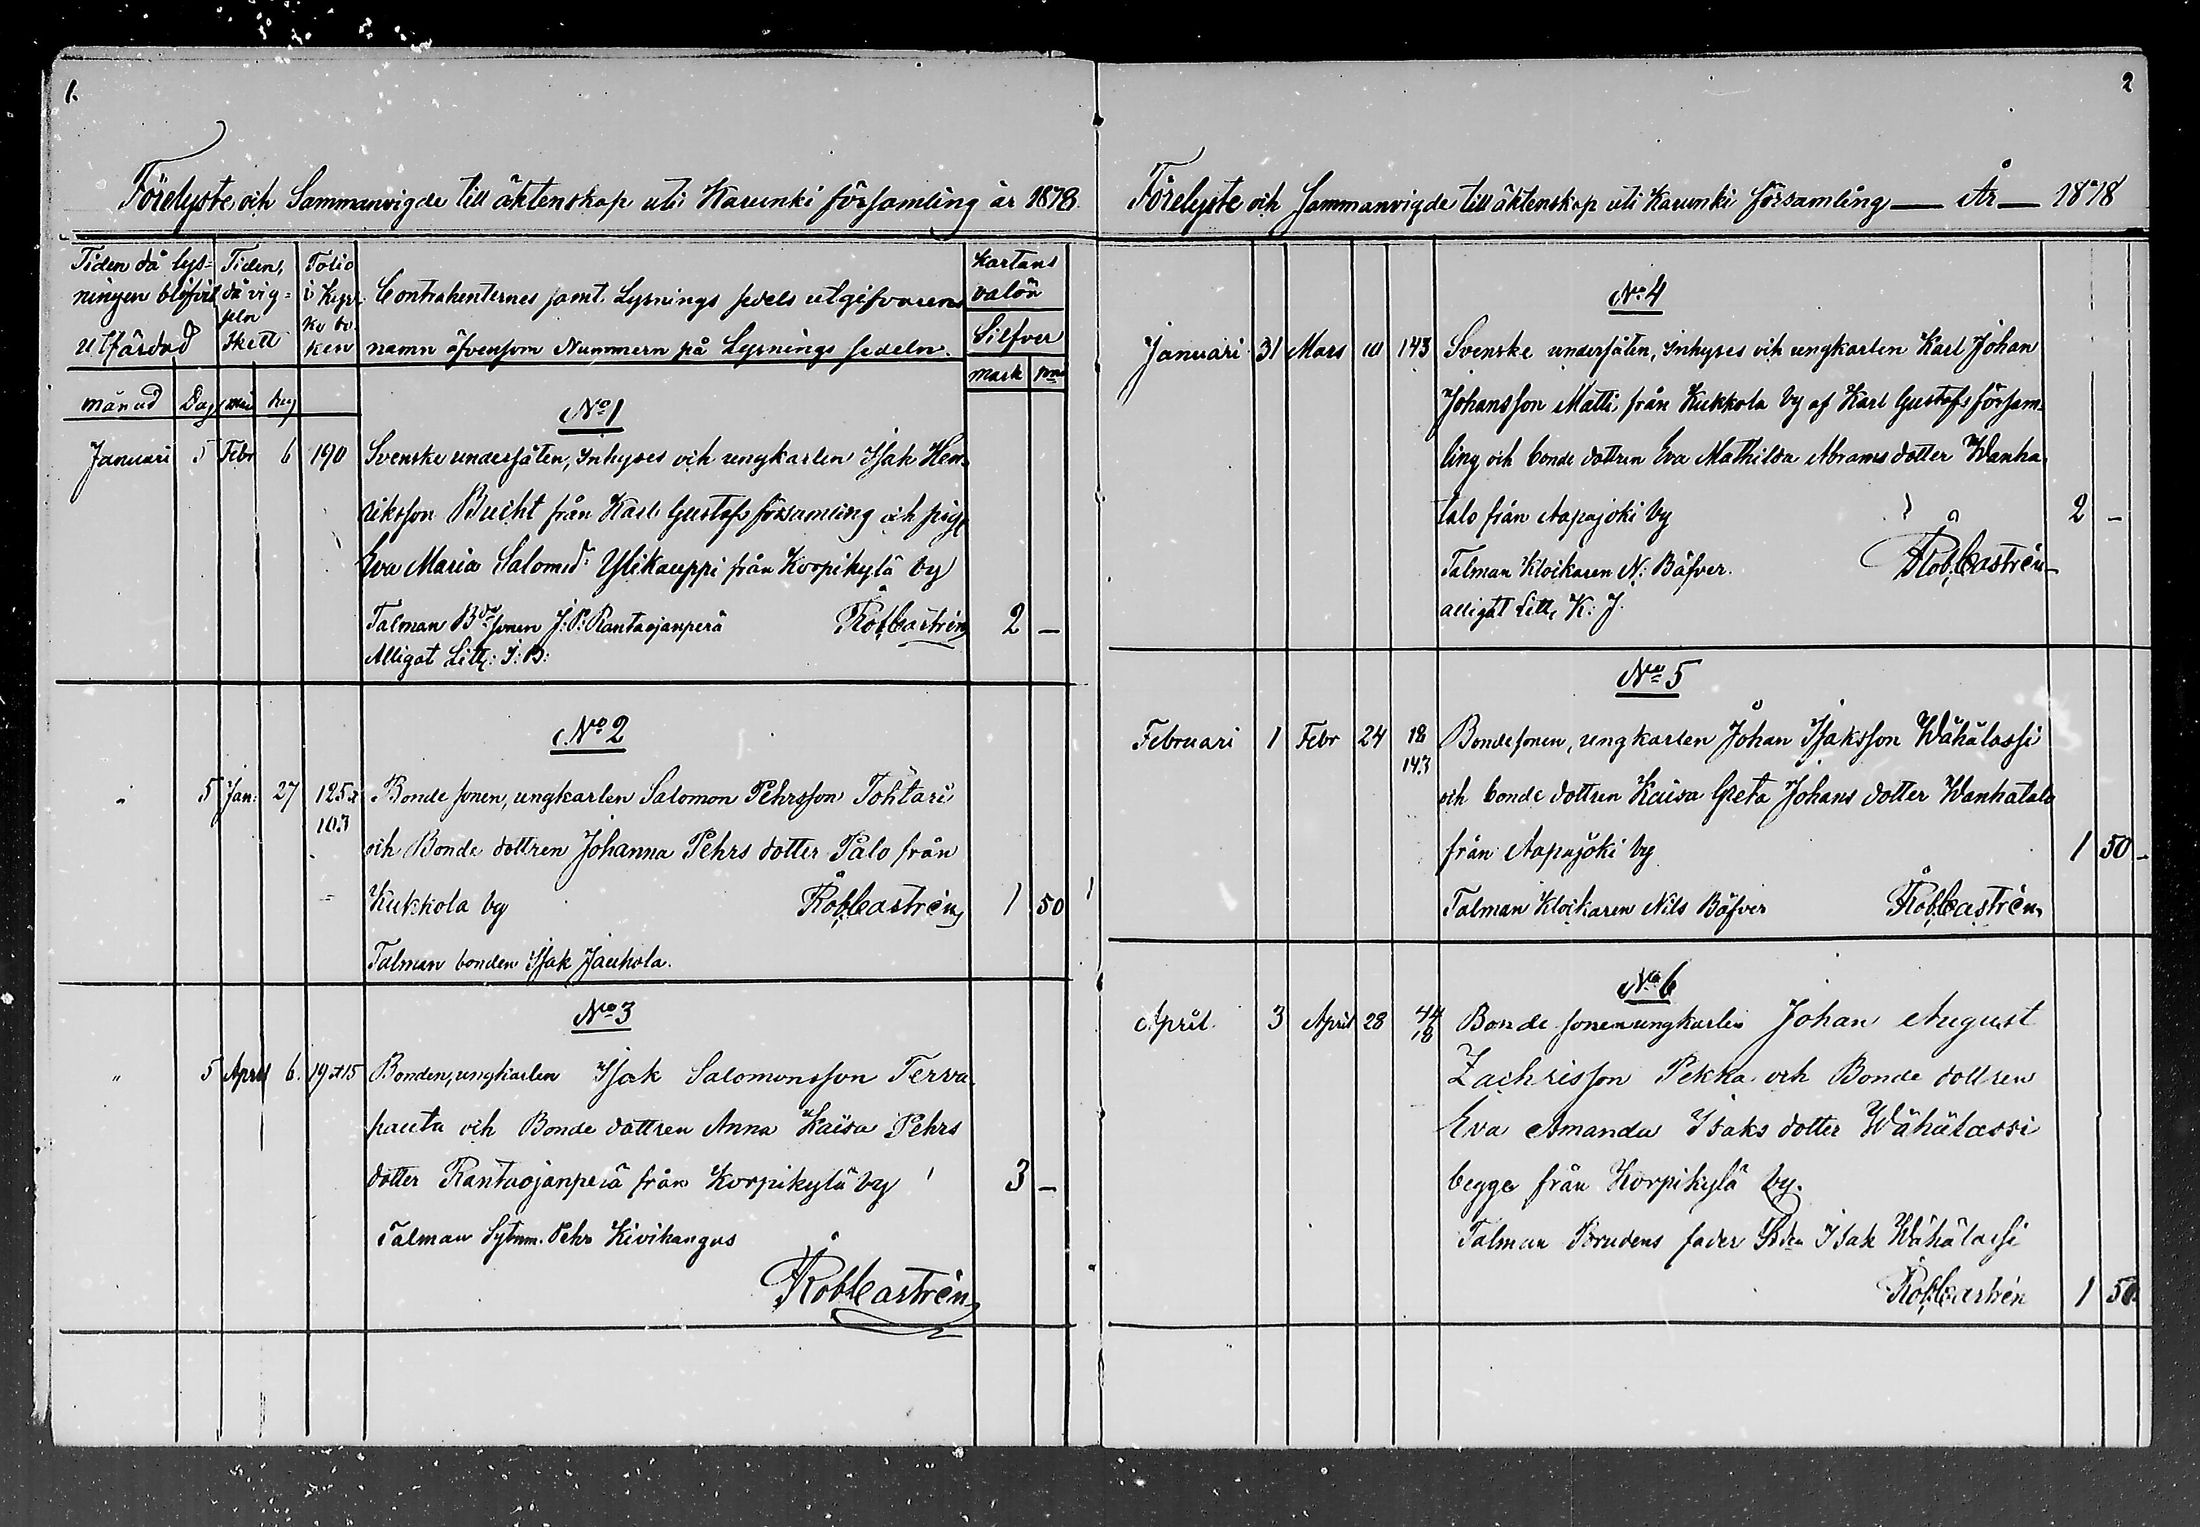 1.
Förelyste och Sammanvigde till äktenskap uti Karunki församling år 1878.
Tiden då lys-
ningen blifvit
utfärdad
Tiden,
då vig-
seln
skett
Folio
i Kyr-
ko bo-
ken
Contrahenternes samt Lysnings sedels utgifvarens
namn äfvensom Nummern på Lysnings sedeln.
Kartans
valör
Silfver
mark
månad Dag
No 1
Januari 5 Febr 6 190 Svenske undersåten, Inhyses och ungkarlen Isak Hen-
riksson Bucht från Karl Gustafs församling och pigg
Eva Maria Salomsd: Ylikauppi från Korpikylä by
Talman Bdesonen J: P: Rantaojanperä RobCastrén 2 —
Alligat Litt: I: B:
No 2
" 5 Jan: 27 125 Bonde sonen, ungkarlen Salomon Pehrsson Tohtari
103
och Bonde dottren Johanna Pehrs dotter Palo från
Kukkola by RobCastrén 1 50
Talman bonden Isak Jauhola.
No 3
" 5 April 6. 19 15 Bonden, ungkarlen Isak Salomonsson Terva-
pauta och Bonde dottren Anna Kaisa Pehrs
dotter Rantaojanperä från Korpikylä by 3 —
Talman Sytnm. Pehr Kivikangus
RobCastrén
2
Förelyste och Sammanvigde till äktenskap uti Karunki församling — År — 1878
No 4
Januari 31 Mars 10 143 Svenske undersåten, Inhyses och ungkarlen Karl Johan
Johansson Matti från Kukkola by af Karl Gustafs försam-
ling och bonde dottren Eva Mathilda Abrams dotter Wanha
talo från Aapajoki by 2 —
Talman Klockaren N: Bäfver. RobCastrén
alligat Litt, K: J.
No 5
Februari 1 Febr 24 18 Bondesonen, ungkarlen Johan Isaksson Wähälassi
143
och bonde dottren Kaisa Greta Johans dotter Wanhatalo
från Aapajoki by 1 50 —
Talman Klockaren Nils Bäfver RobCastrén
No 6
April 3 April 28 44 Bonde sonen ungkarlen Johan August
18
Zachrisson Pekka och Bonde dottren
Eva Amanda Isaks dotter Wähälassi
begge från Korpikylä by.
Talman Brudens fader Bden Isak Wähälassi
RobCastrén 1 50